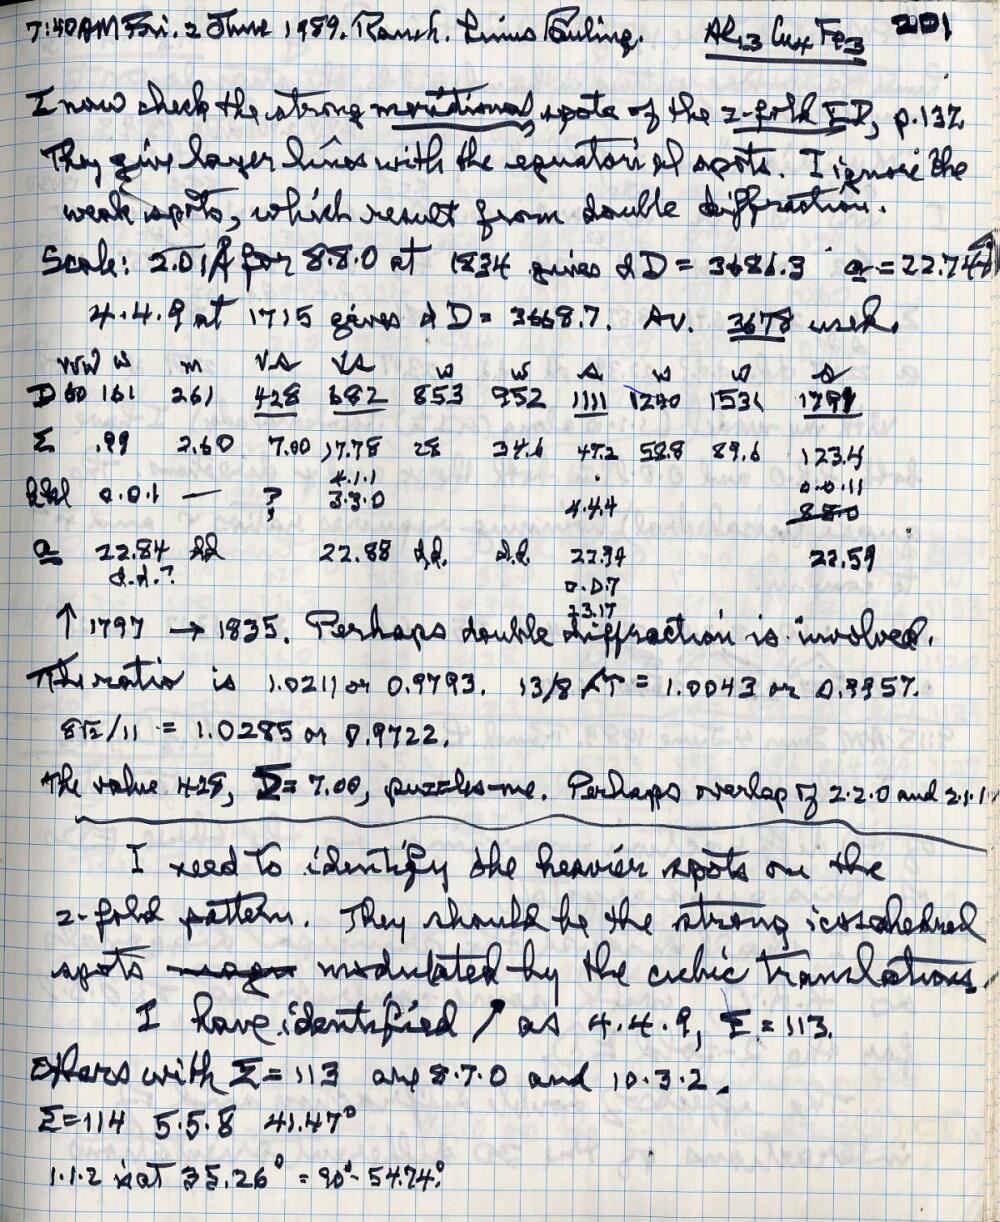 7:40 AM Fri. 2 June 1989. Ranch. Linus Pauling. Al13 Cu4 Fe3 201
I now check the strong meridional spots of the 2-fold ED, p.132
They give layer lines with the equatorial spots. I ignore the
weak spots, which result from double diffraction.
Scale: 2.01Å for 8.8.0 at 1834 gives λD = 3686.3 a = 22.74Å
4.4.9 at 1715 gives λD = 3668.7. Av. 3678 used.
vvw w m vs vs w w s w w s
D 80 161 261 428 682 853 952 1111 1240 1531 1797
Σ .99 2.60 7.00 17.78 28 34.6 47.2 58.8 89.6 123.4
4.1.1 0.0.11
hkl 0.0.1 — ? 3.3.0 4.4.4 880
a 22.84 dd 22.88 d.d. d.d 22.94 22.59
d.d.? 0.0.7
23.17
↑ 1797 → 1835. Perhaps double diffraction is involved.
The ratio is 1.0211 or 0.9793. 13/8 = 1.0043 or 0.9957.
8√2/11 = 1.0285 or 0.9722.
The value 428, Σ = 7.00, puzzles me. Perhaps overlap of 2.2.0 and 2.1.1
I need to identify the heavier spots on the
2-fold pattern. They should be the strong icosahedral
spots modulated by the cubic translations.
I have identified ↗ as 4.4.9, Σ = 113.
Others with Σ = 113 are 8.7.0 and 10.3.2.
Σ=114 5.5.8 41.47°
1.1.2 is at 35.26° = 90°- 54.74°